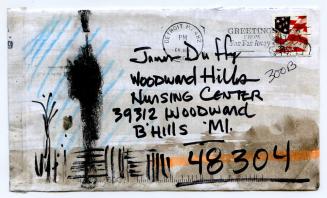 DETROIT
PM
GREETINGS
FROM
Far Far Away
Janne Duffy
Woodward Hills
Nursing Center
39312 Woodward
B'Hills MI.
48304
30013